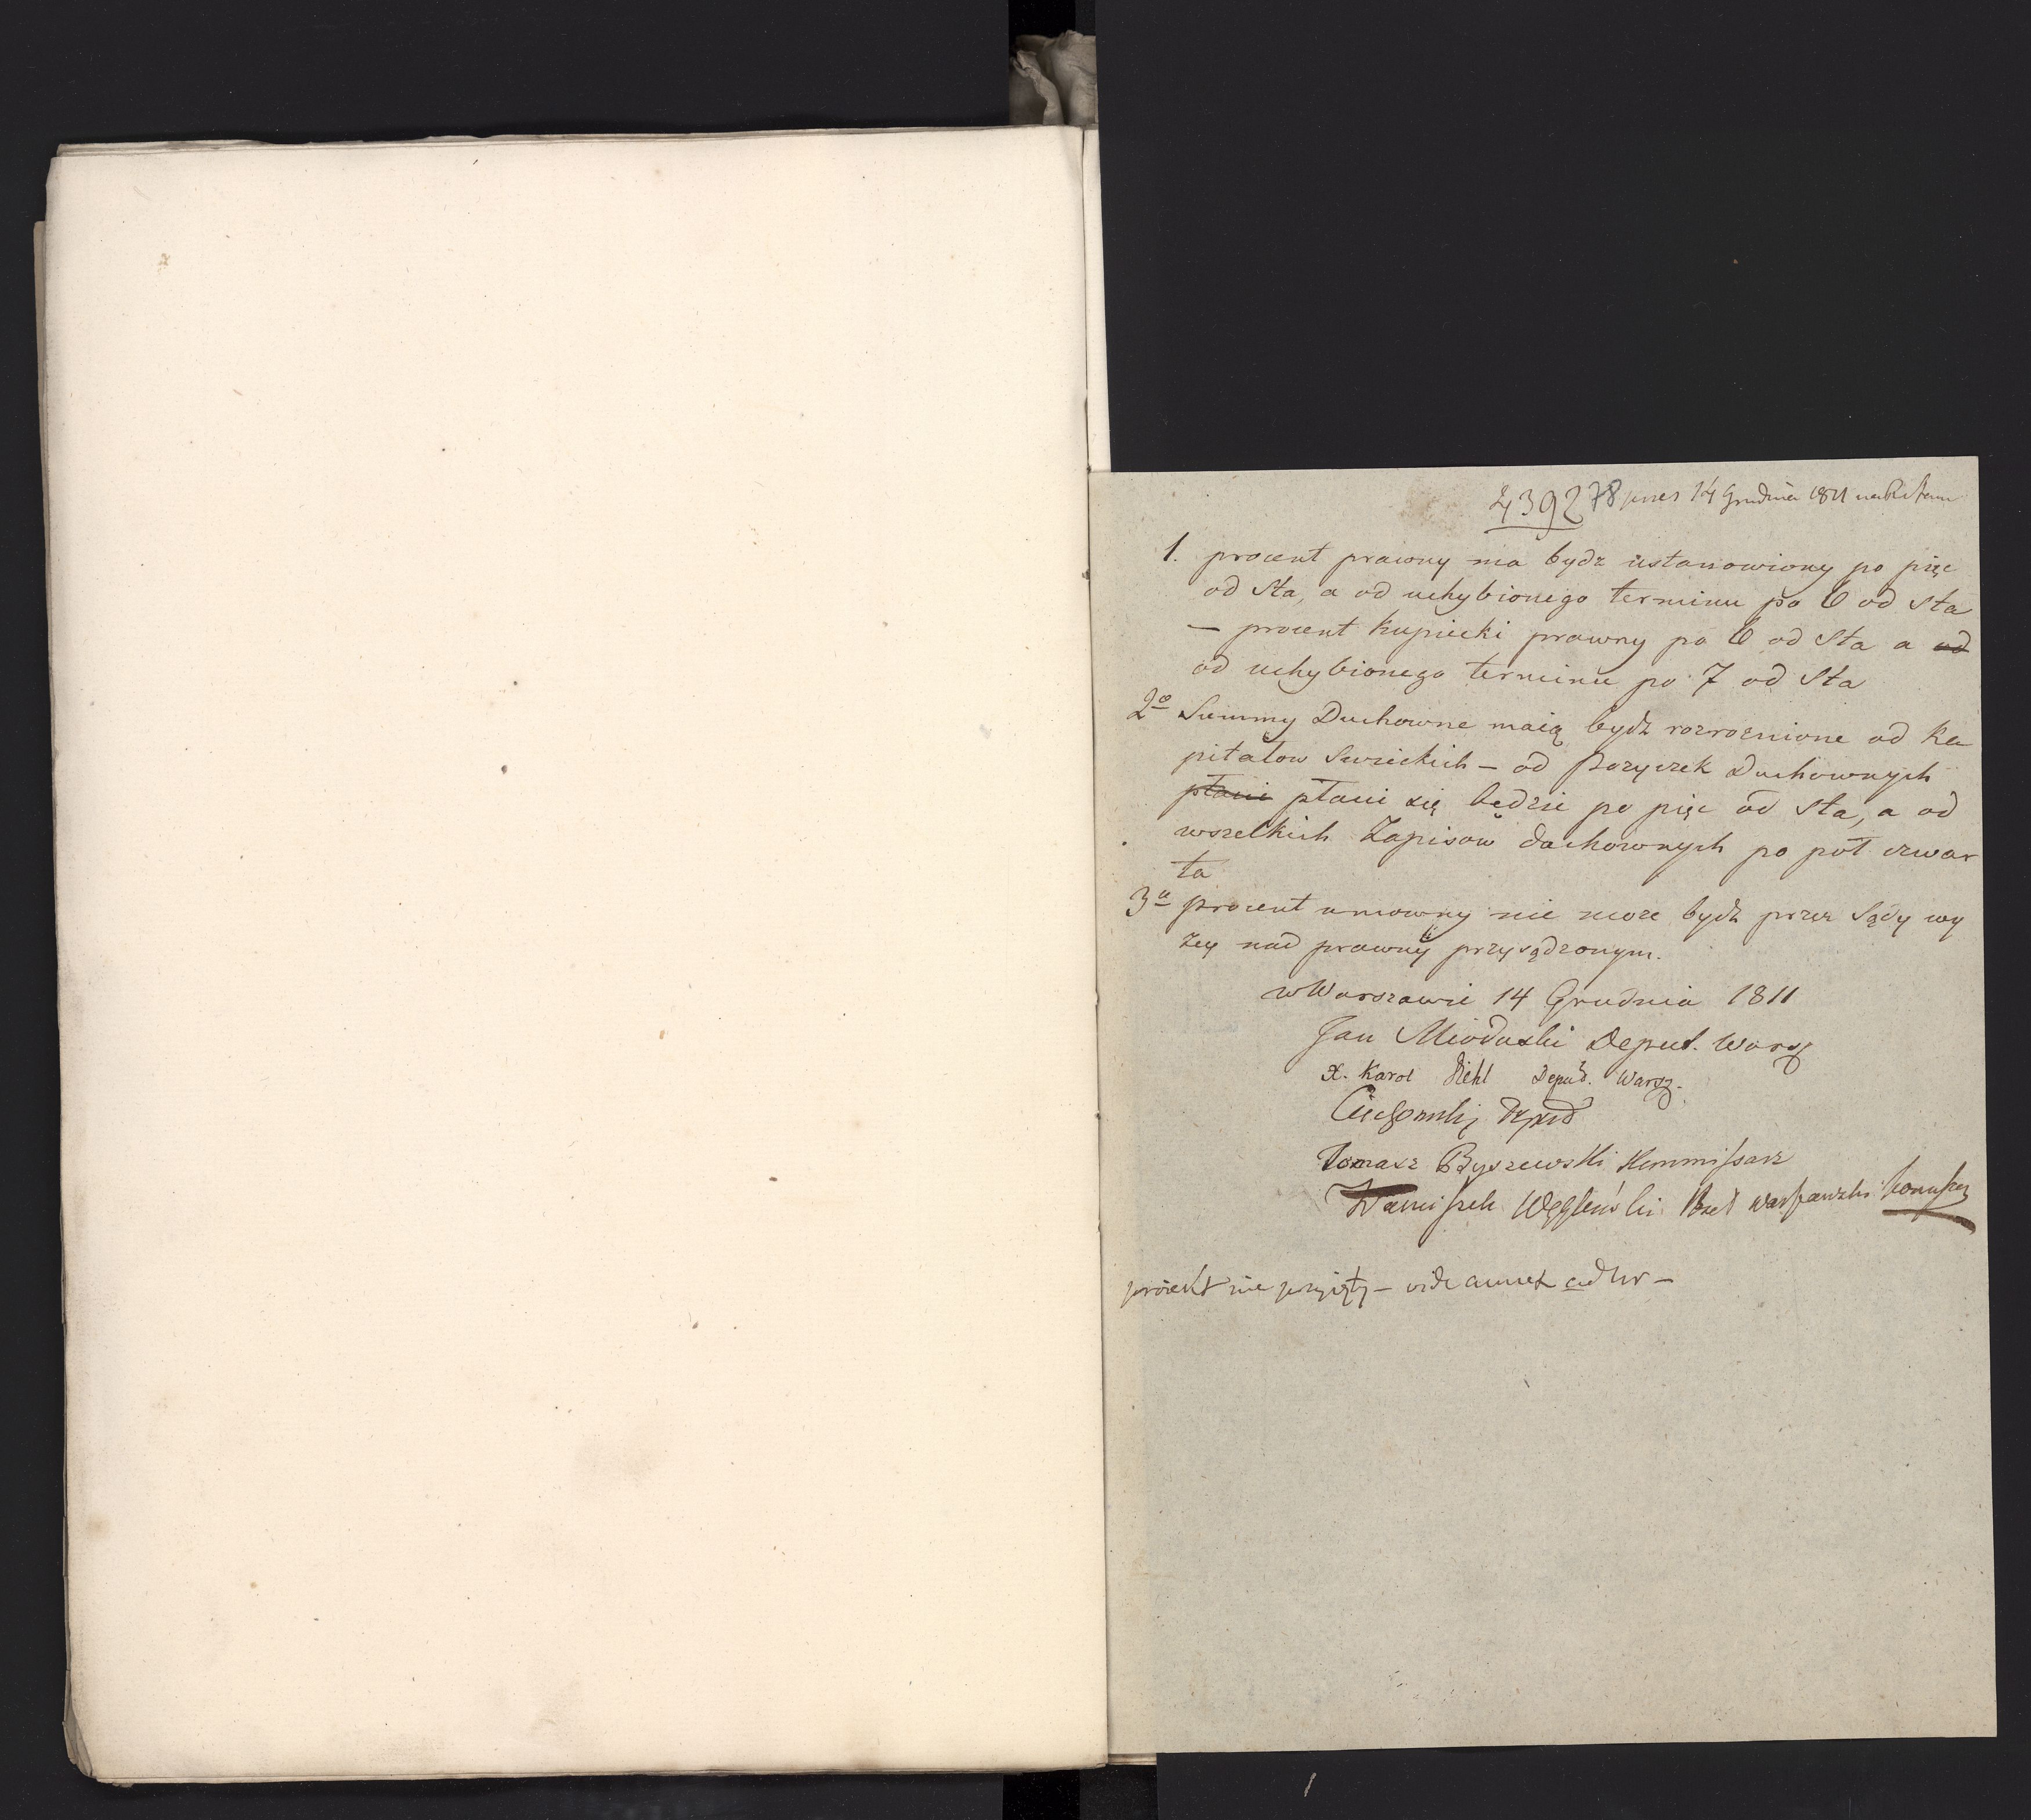 439278 pres 14 Grudnia 1811
1. procent prawny ma bydz ustanowiony po pięc
od Sta, a od uchybionego terminu po 6 od Sta
— procent kupiecki prawny po 6 od Sta a od
od uchybionego terminu po 7 od Sta
2o Summy Duchowne maią bydz rozroznione od Ka
pitalow Swieckich – od Pozyczek Duchownych
płaci płaci się będzie po pięc od Sta, a od
wszelkich Zapisow duchownych po poł czwar
ta
3a procent umowny nie moze bydz przez Sądy wy
zey nad prawny przysądzonym.
w Warszawie 14 Grudnia 1811
Jan Mioduski Deput. Warsz
X. Karol Diehl Deput. Warsz.
Deput
Tomasz Byszewski Kommissarz
Węgleński warszawski
proiekt nie przyięty – vide annex